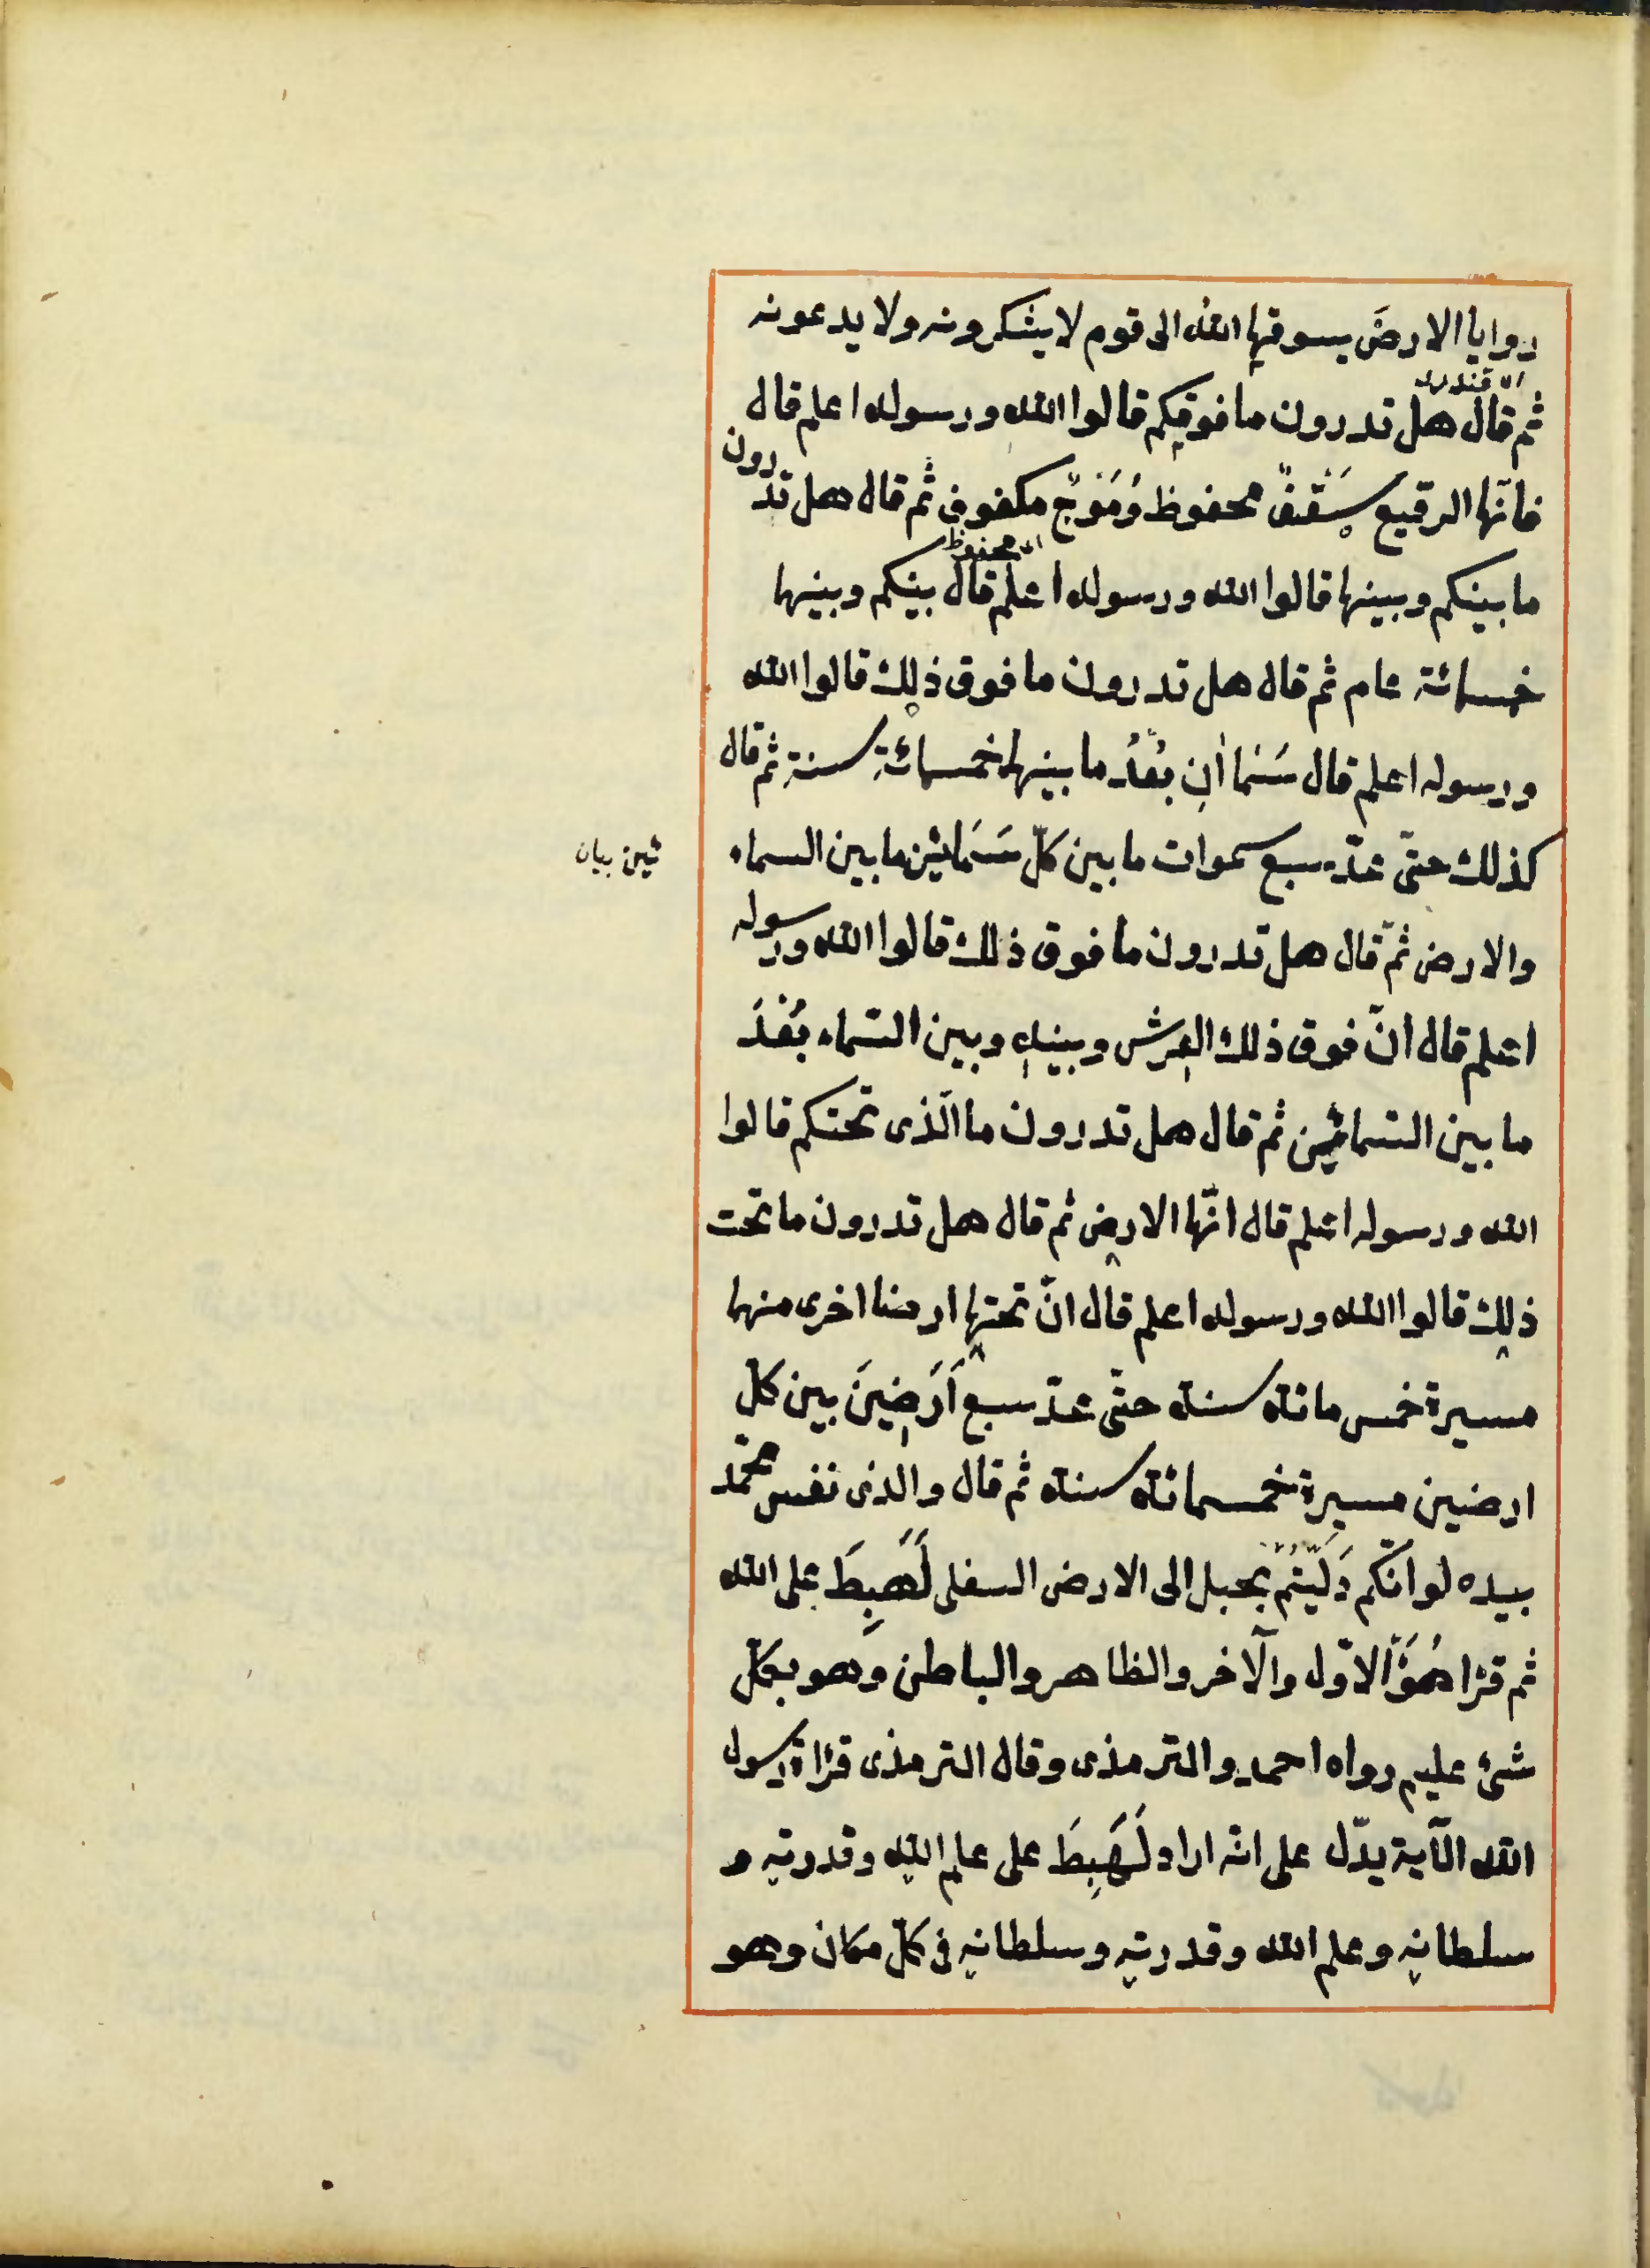 روايا الارضَ يسوقها اللهُ الى قوم لا يشكرونه ولا يدعونه
ثم قال هل تدرون ما فوقكم قالوا الله ورسوله اعلم قال
فانّها الرقيع سَقْفٌ محفوظ وَمَوْجٌ مكفوف ثم قال هل تدرون
محفوظ
ما بينكم وبينها قالوا الله ورسوله اعلم قال بينكم وبينها
خمسمائة عام ثم قال هل تدرون ما فوق ذلك قالوا الله
ورسوله اعلم قال سَمَاانِ بُعْدُ ما بينهما خمسمائة سنة ثم قال
كذلك حتىّ عدّ سبع سموات ما بين كلّ سَمَائين ما بين السماء
ئين بيان
والارض ثمّ قال هل تدرون ما فوق ذلك قالوا الله ورسوله
اعلم قال انّ فوق ذلك العرش وبينه وبين السّماء بُعْدَ
ما بين السّمائين ثم قال هل تدرون ما الّذى تحتكم قالوا
الله ورسوله اعلم قال انّها الارض ثم قال هل تدرون ما تحت
ذلك قالوا الله ورسوله اعلم قال انّ تحتها ارضا اخرى منهما
مسيرة خمس مائة سنة حتّى عدّ سبع اَرَضِينَ بين كلّ
ارضين مسيرة خمسمائة سنة ثم قال والذى نفس محمّد
بيده لو انّكم دَلَّيْتُمْ بحبل الى الارض السفلى لَهَبِطَ على الله
ثم قرٔا هُوَ الاوّل والآخر والظاهر والباطن وهو بكلّ
شئ عليم رواه احمد والترمذى وقال الترمذى قرٔاة رسول
الله الآية يدّل على انّه اراد لَهَبِطَ على علم اللهِ وقدرتِه و
سلطانِه وعلم الله وقدرتِه وسلطانِه فى كلّ مكان وهو